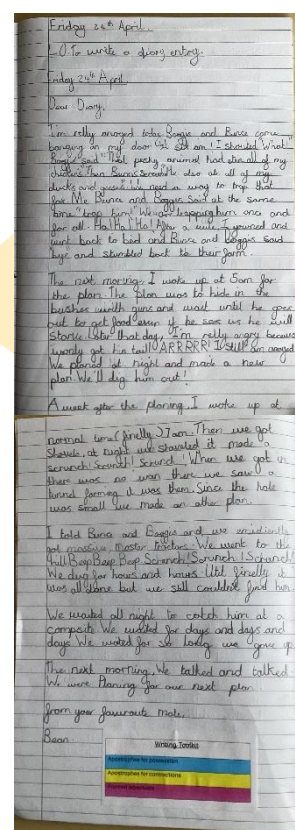 Friday 24th April
L.O. To write a diary entry.
Friday 24th April
Dear Diary,
I'm relly anoyed today Boogis and Bunce came
banging on my door at am! I shouted "What"
Boogis said "That pesky animal had all of my
chickens" Then Bunce also at all of my
ducks and We need a way to trap that
fox. Me Bunce and Boggis Said at the same
time "trap him!" We are trapping him once and
for all. Ha! Ha! Ha! After a wile I yawned and
went back to bed and Bunce and boggis said
bye and stumbled back to their farm.
The next morning, I woke up at 5am for
the plan. The plan was to hide in the
bushes with guns and wait until he goes
out to get food even if he sees us he will
starve. Later that day, I'm relly angry because
I wonly got his tail! ARRRRR! I still am anoyed
We planed at night and made a new
plan. We'll dig him out!
A week after the planing I woke up at
normal time (finelly) 7am. Then we got
Shovels, at night we shoveled it made a
scrunch! Scrunch! Scrunch! When we got in
there was no wan there we saw a
tunnel forming it was them. Since the hole
was small we made an other plan.
I told Bunce and Boggis and we emediently
got massive, moster tractors. We went to the
hill Beep Beep Beep Scrunch! Scrunch! Scrunch!
We dug for hours and hours. Util finelly it
was all done but we still couldn't find him
We waited all night to catch him at a
campsite We waited for days and days and
days We wated for so long we gave up
The next morning, We talked and talked
We were Planing for our next plan.
from your favouraute mate,
Bean
Writing Toolkit
Apostrophes for possession
Apostrophes for contractions
Fronted adverbials